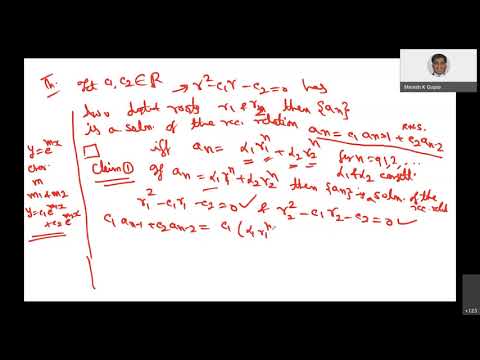 Th: Let c1, c2 ∈ R → r² - c1r - c2 = 0 has
two roots r1 & r2, then {an}
is a soln. of the rec. relation an = c1 an-1 + c2 an-2
iff an = α1 r1^n + α2 r2^n for n = 0,1,2,...
α1 & α2 constt.
Claim ① If an = α1 r1^n + α2 r2^n then {an} is a soln. of the
r1² - c1r1 - c2 = 0 ✓ & r2² - c1r2 - c2 = 0 ✓
c1 an-1 + c2 an-2 = c1 (α1 r1^n
y = e^mx
m
m1 & m2
y = c1 e^mx
+ c2 e^mx
Manish K Gupta